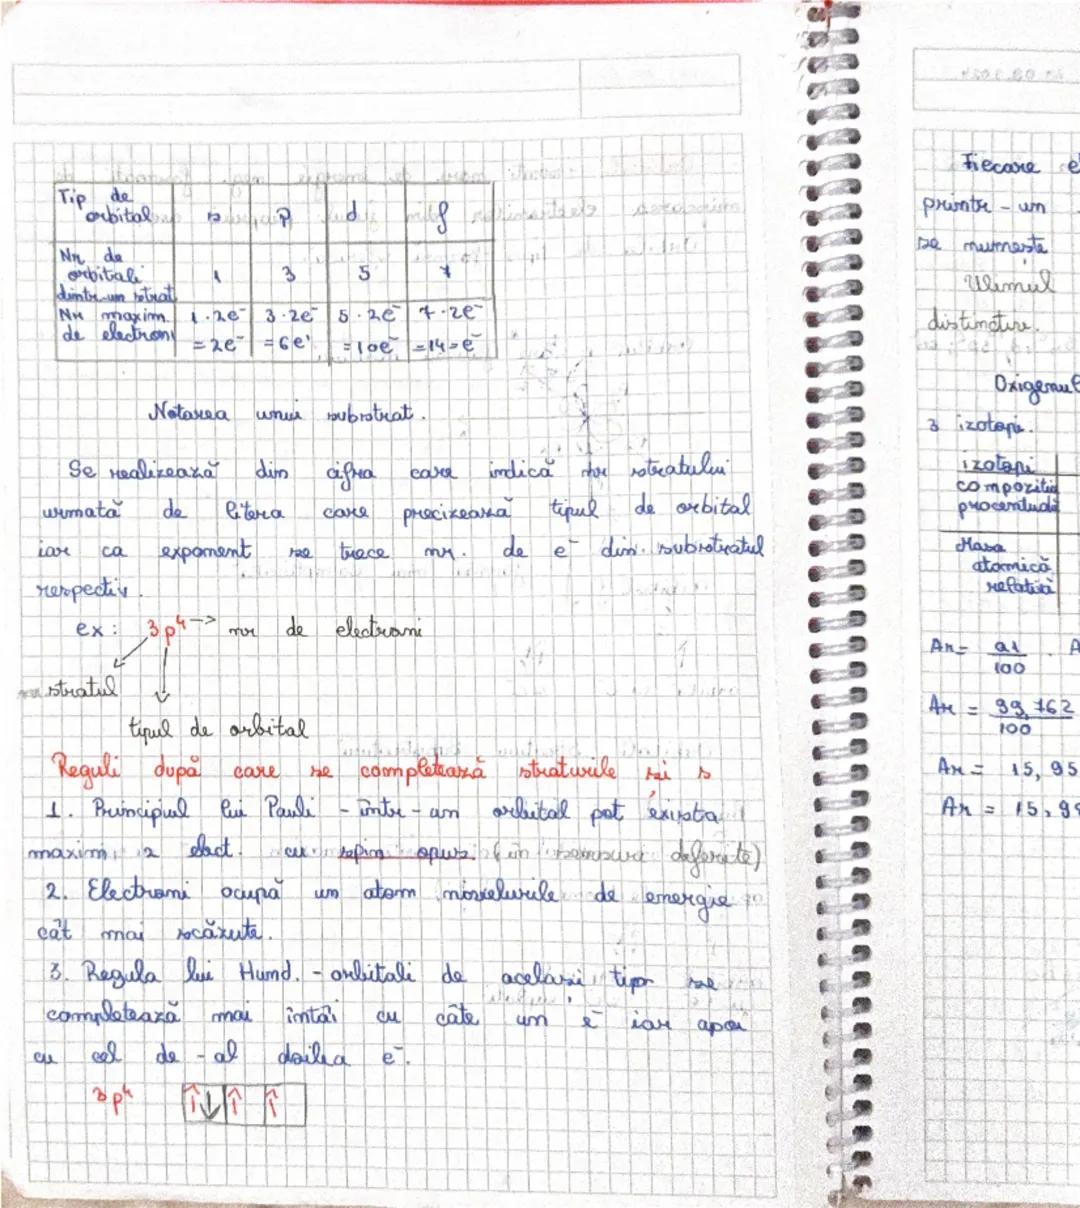 Tip de orbital s p d f
Nr de orbitali dintr-un strat 1 3 5 7
Nr maxim de electroni 1·2e⁻ =2e⁻ 3·2e⁻ =6e⁻ 5·2e⁻ =10e⁻ 7·2e⁻ =14e⁻
Notarea unui substrat.
Se realizează din cifra care indică nr stratului
urmată de litera care precizează tipul de orbital
iar ca exponent se trece nr. de e⁻ din substratul
respectiv.
ex: 3p⁴ -> nr de electroni
stratul
tipul de orbital
Reguli după care se completează straturile si s
1. Principiul lui Pauli - într-un orbital pot exista
maxim 2 elect. cu spin opus (în sensuri diferite)
2. Electroni ocupă un atom nivelurile de energie
cât mai scăzute.
3. Regula lui Humd. - orbitali de acelasi tip se
completează mai întâi cu câte un e⁻ iar apoi
cu cel de-al doilea e⁻.
3p⁴ ↑↓ ↑ ↑
Fiecare
printr-un
se numeste
Ulimul
distinctive.
Oxigenul
3 izotopi.
izotopi
compozitia
procentuală
Masa
atomică
relativă
Ar= a1/100 . A
Ar = 99,762/100
Ar = 15,95
Ar = 15,99